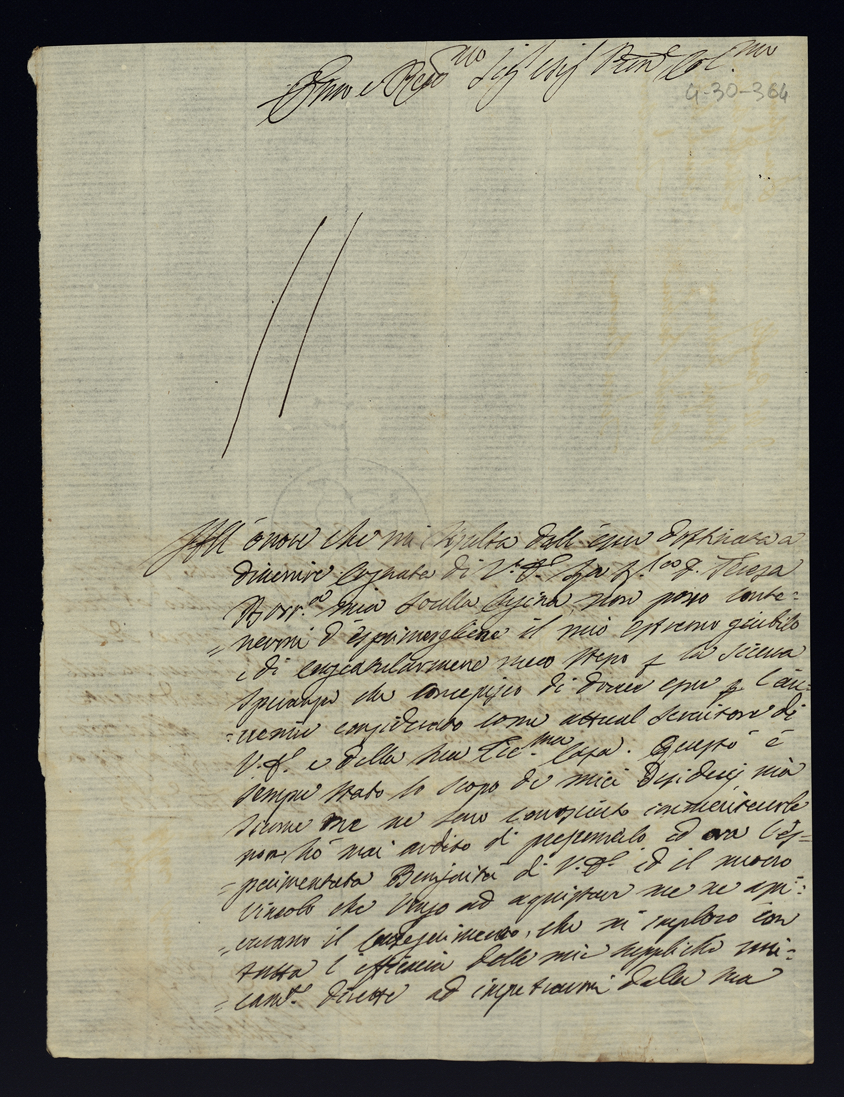 Emo e Revmo Sig. Sig. Pron. Col.mo
4-30-364
All'onore che mi risulta dall'esser destinata a
divenire Cognata di V. la Teresa
mia Sorella Cugina non posso conte=
=nermi d'esprimergliene il mio estremo giubilo
e di congratularmene meco stesso p la sicura
speranza che concepisco di dover esser p l'av=
=venire considerato come attual Servitore di
V. e della sua Ecc.ma Casa. Questo è
sempre stato lo scopo de miei Desiderj mà
siccome me ne sono conosciuto immeritevole
non hò mai ardito di ed ora l'es=
=perimentata Benignità di V. ed il nuovo
vincolo che vengo ad aquistare me ne
il che ni imploro con
tutta l'efficacia delle mie suppliche uni=
=camte dirette ad impetrarmi dalla sua